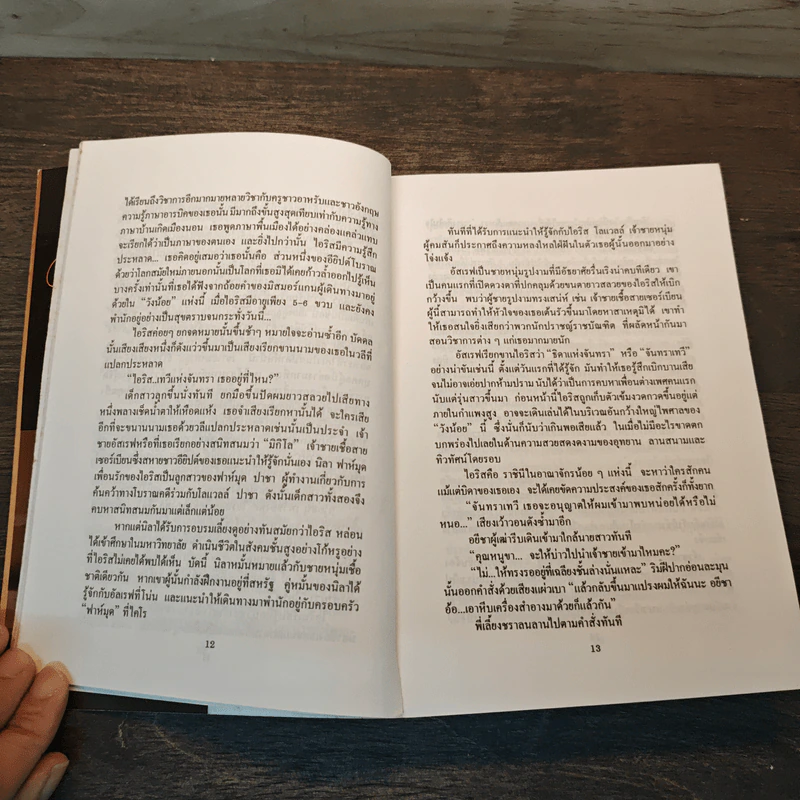 ได้เรียนถึงวิชาการอีกมากมายหลายวิชากับครูชาวอาหรับและชาวอังกฤษ
ความรู้ภาษาอารบิคของเธอนั้น มีมากถึงขั้นสูงสุดเทียบเท่ากับความรู้ทาง
ภาษาบ้านเกิดเมืองนอน เธอพูดภาษาพื้นเมืองได้อย่างคล่องแคล่วแทบ
จะเรียกได้ว่าเป็นภาษาของตนเอง และยิ่งไปกว่านั้น ไอริสมีความรู้สึก
ประหลาด... เธอคิดอยู่เสมอว่าเธอนั้นคือ ส่วนหนึ่งของอียิปต์โบราณ
ด้วยว่าโลกสมัยใหม่ภายนอกนั้นเป็นโลกที่เธอมิได้เคยก้าวล้ำออกไปรู้เห็น
บางครั้งเท่านั้นที่เธอได้ฟังจากถ้อยคำของมิสมอร์แกนผู้เดินทางมาอยู่
ด้วยใน “วังน้อย” แห่งนี้ เมื่อไอริสมีอายุเพียง 5-6 ขวบ และยังคง
พำนักอยู่อย่างเป็นสุขตราบจนกระทั่งวันนี้...
ไอริสค่อยๆ ยกจดหมายนั้นขึ้นช้าๆ หมายใจจะอ่านซ้ำอีก บัดดล
นั้นเสียงเสียงหนึ่งก็ดังแว่วขึ้นมาเป็นเสียงเรียกขานนามของเธอในวลีที่
แปลกประหลาด
“ไอริส..เทวีแห่งจันทรา เธออยู่ที่ไหน?”
เด็กสาวลุกขึ้นนั่งทันที ยกมือขึ้นปัดผมยาวสลวยไปเสียทาง
หนึ่งพลางเช็ดน้ำตาให้เหือดแห้ง เธอจำเสียงเรียกหานั้นได้ จะใครเสีย
อีกที่จะขนานนามเธอด้วยวลีแปลกประหลาดเช่นนั้นเป็นประจำ เจ้า
ชายอัสเรฟหรือที่เธอเรียกอย่างสนิทสนมว่า “มิกิโล” เจ้าชายเชื้อสาย
เซอร์เบียนซึ่งสหายชาวอียิปต์ของเธอแนะนำให้รู้จักนั่นเอง นิลา ฟาห์มุด
เพื่อนรักของไอริสเป็นลูกสาวของฟาห์มุด ปาชา ผู้ทำงานเกี่ยวกับการ
ค้นคว้าทางโบราณคดีร่วมกับโลแวลล์ ปาชา ดังนั้นเด็กสาวทั้งสองจึง
คบหาสนิทสนมกันมาแต่เล็กแต่น้อย
หากแต่นิลาได้รับการอบรมเลี้ยงดูอย่างทันสมัยกว่าไอริส หล่อน
ได้เข้าศึกษาในมหาวิทยาลัย ดำเนินชีวิตในสังคมชั้นสูงอย่างโก้หรูอย่าง
ที่ไอริสไม่เคยได้พบได้เห็น บัดนี้ นิลาหมั้นหมายแล้วกับชายหนุ่มเชื้อ
ชาติเดียวกัน หากเขาผู้นั้นกำลังฝึกงานอยู่ที่สหรัฐ คู่หมั้นของนิลาได้
รู้จักกับอัลเรฟที่โน่น และแนะนำให้เดินทางมาพำนักอยู่กับครอบครัว
“ฟาห์มุด” ที่ไคโร
12
ทันทีที่ได้รับการแนะนำให้รู้จักกับไอริส โลแวลล์ เจ้าชายหนุ่ม
ผู้คมสันก็ประกาศถึงความหลงใหลใฝ่ฝันในตัวเธอผู้นั้นออกมาอย่าง
โจ่งแจ้ง
อัสเรฟเป็นชายหนุ่มรูปงามที่มีอัธยาศัยรื่นเริงน่าคบทีเดียว เขา
เป็นคนแรกที่เปิดดวงตาที่ปกคลุมด้วยขนตายาวสลวยของไอริสให้เบิก
กว้างขึ้น พบว่าผู้ชายรูปงามทรงเสน่ห์ เช่น เจ้าชายเชื้อสายเซอร์เบียน
ผู้นี้สามารถทำให้หัวใจของเธอเต้นรัวขึ้นมาโดยหาสาเหตุมิได้ เขาทำ
ให้เธอสนใจยิ่งเสียกว่าพวกนักปราชญ์ราชบัณฑิต ที่ผลัดหน้ากันมา
สอนวิชาการต่าง ๆ แก่เธอมากมายนัก
อัสเรฟเรียกขานไอริสว่า “ธิดาแห่งจันทรา” หรือ “จันทราเทวี”
อย่างน่าขันเช่นนี้ ตั้งแต่วันแรกที่ได้รู้จัก มันทำให้เธอรู้สึกเบิกบานเสีย
จนไม่อาจเอ่ยปากห้ามปราม นับได้ว่าเป็นการคบหาเพื่อนต่างเพศคนแรก
นับแต่รุ่นสาวขึ้นมา ก่อนหน้านี้ไอริสถูกเก็บตัวเข้มงวดกวดขึ้นอยู่แต่
ภายในกำแพงสูง อาจจะเดินเล่นได้ในบริเวณอันกว้างใหญ่ไพศาลของ
“วังน้อย” นี้ ซึ่งนั่นก็นับว่าเกินพอเสียแล้ว ในเมื่อไม่มีอะไรขาดตก
บกพร่องไปเลยในด้านความสวยสดงดงามของอุทยาน ลานสนามและ
ทิวทัศน์โดยรอบ
ไอริสคือ ราชินีในอาณาจักรน้อย ๆ แห่งนี้ จะหาว่าใครสักคน
แม้แต่บิดาของเธอเอง จะได้เคยขัดความประสงค์ของเธอสักครั้งก็ทั้งยาก
“จันทราเทวี เธอจะอนุญาตให้ผมเข้ามาพบหน่อยได้หรือไม่
หนอ...” เสียงเว้าวอนดังซ้ำมาอีก
อยีชาผู้เฒ่ารีบเดินเข้ามาใกล้นายสาวทันที
“คุณหนูขา... จะให้บ่าวไปนำเจ้าชายเข้ามาไหมคะ?”
“ไม่...ให้ทรงรออยู่ที่เฉลียงชั้นล่างนั่นแหละ” ริมฝีปากอ่อนละมุน
นั้นออกคำสั่งด้วยเสียงแผ่วเบา “แล้วกลับขึ้นมาแปรงผมให้ฉันนะ อยีชา
อ้อ...เอาหีบเครื่องสำอางมาด้วยก็แล้วกัน”
พี่เลี้ยงชราลนลานไปตามคำสั่งทันที
13